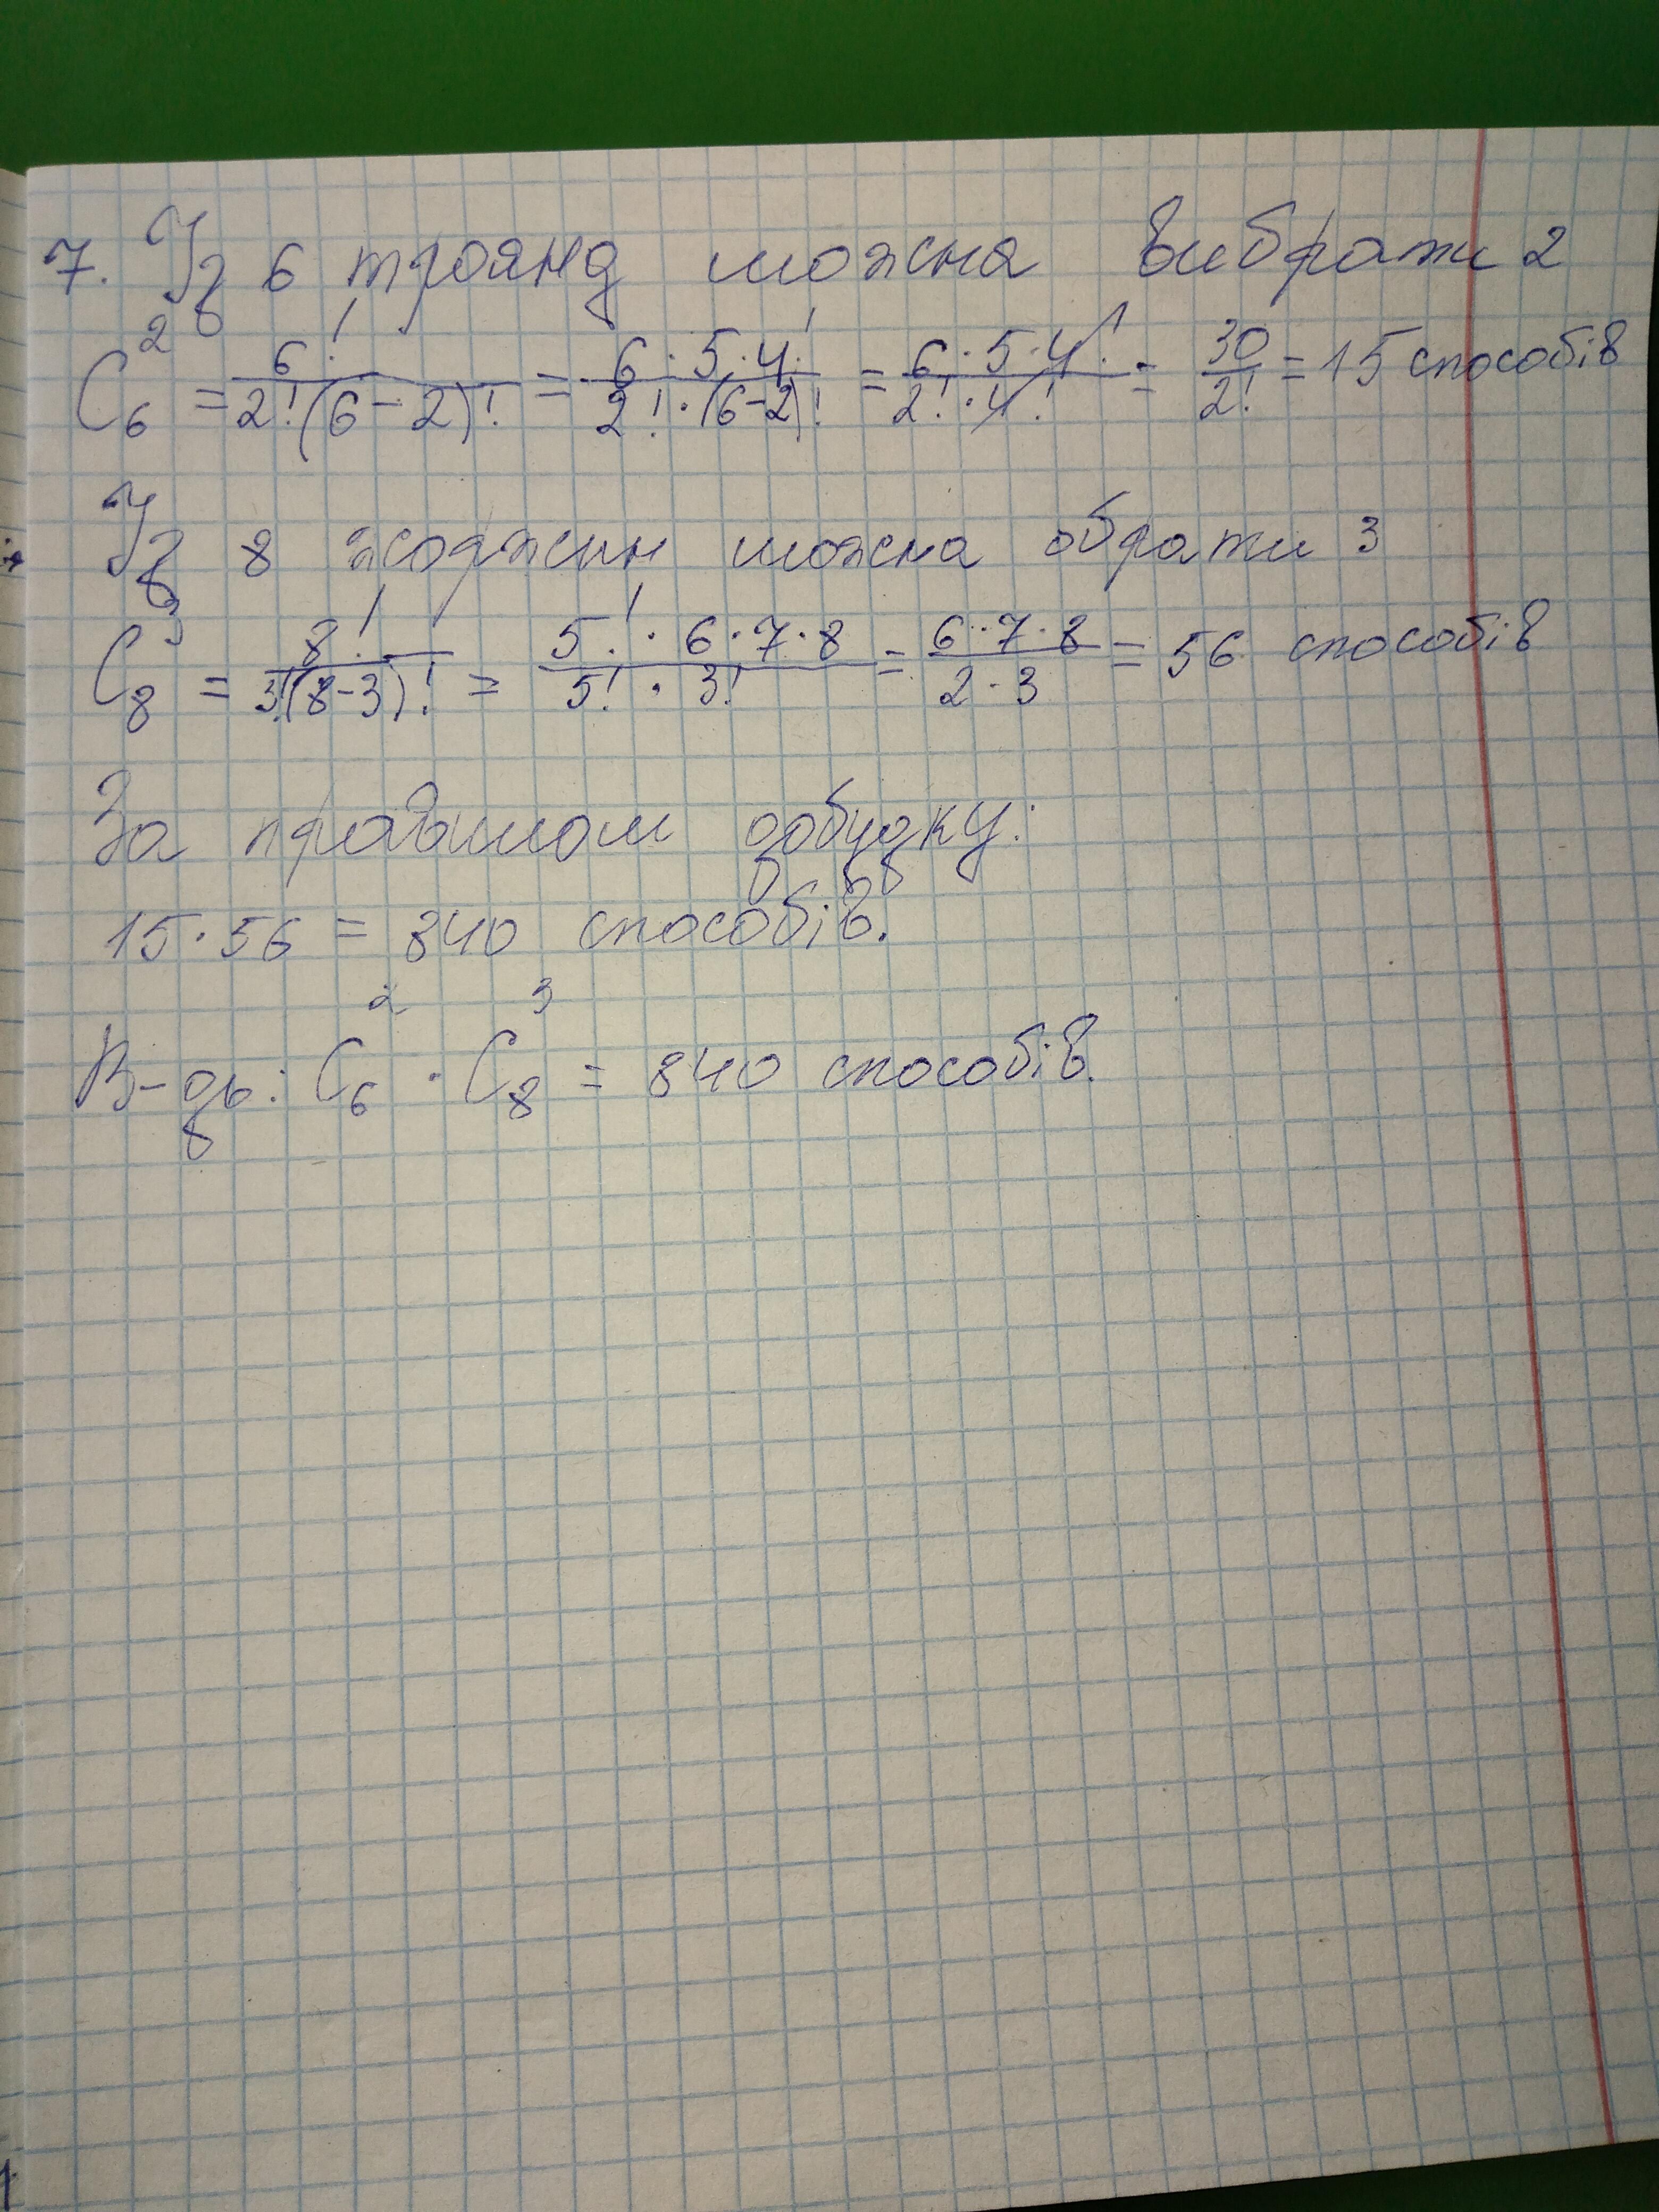 7. Із 6 троянд можна вибрати 2
C₆² = 6! / 2!(6-2)! = 6·5·4! / 2!·(6-2)! = 6·5·4! / 2!·4! = 30 / 2! = 15 способів
Із 8 жоржин можна обрати 3
C₈³ = 8! / 3!(8-3)! = 5!·6·7·8 / 5!·3! = 6·7·8 / 2·3 = 56 способів
За правилом добудку:
15·56 = 840 способів.
В-дь: C₆² · C₈³ = 840 способів.